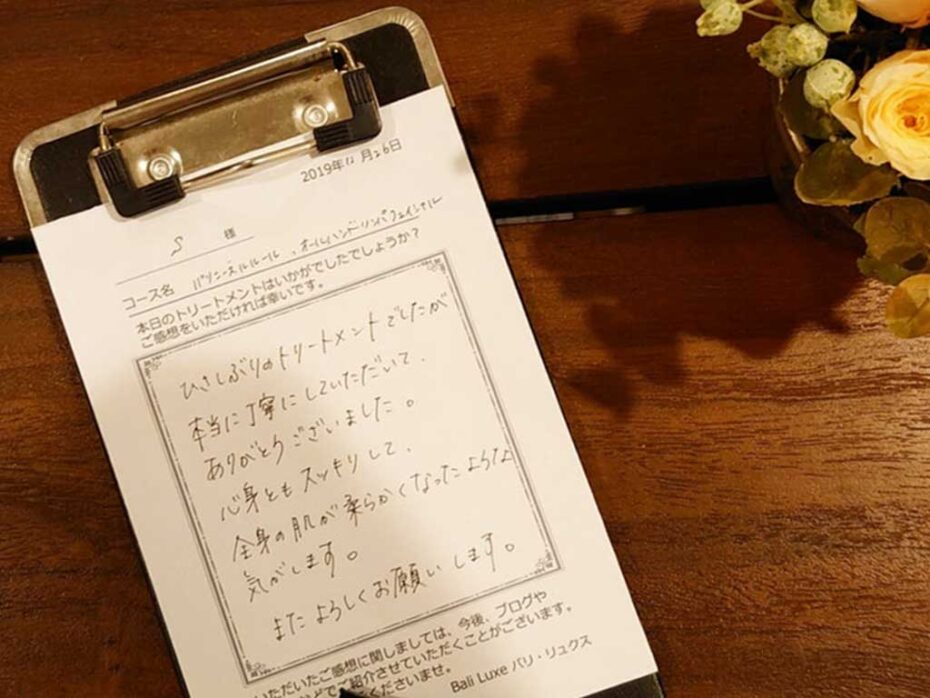 2019年11月26日
S 様
コース名 バリニーズルルール、オールハンドリンパフェイシャル
本日のトリートメントはいかがでしたでしょうか?
ご感想をいただければ幸いです。
ひさしぶりのトリートメントでしたが
本当に丁寧にしていただいて、
ありがとうございました。
心身ともスッキリして、
全身の肌が柔らかくなったような
気がします。
またよろしくお願いします。
いただいたご感想に関しましては、今後、ブログや
どでご紹介させていただくことがございます。
くださいませ。
Bali Luxe バリ・リュクス